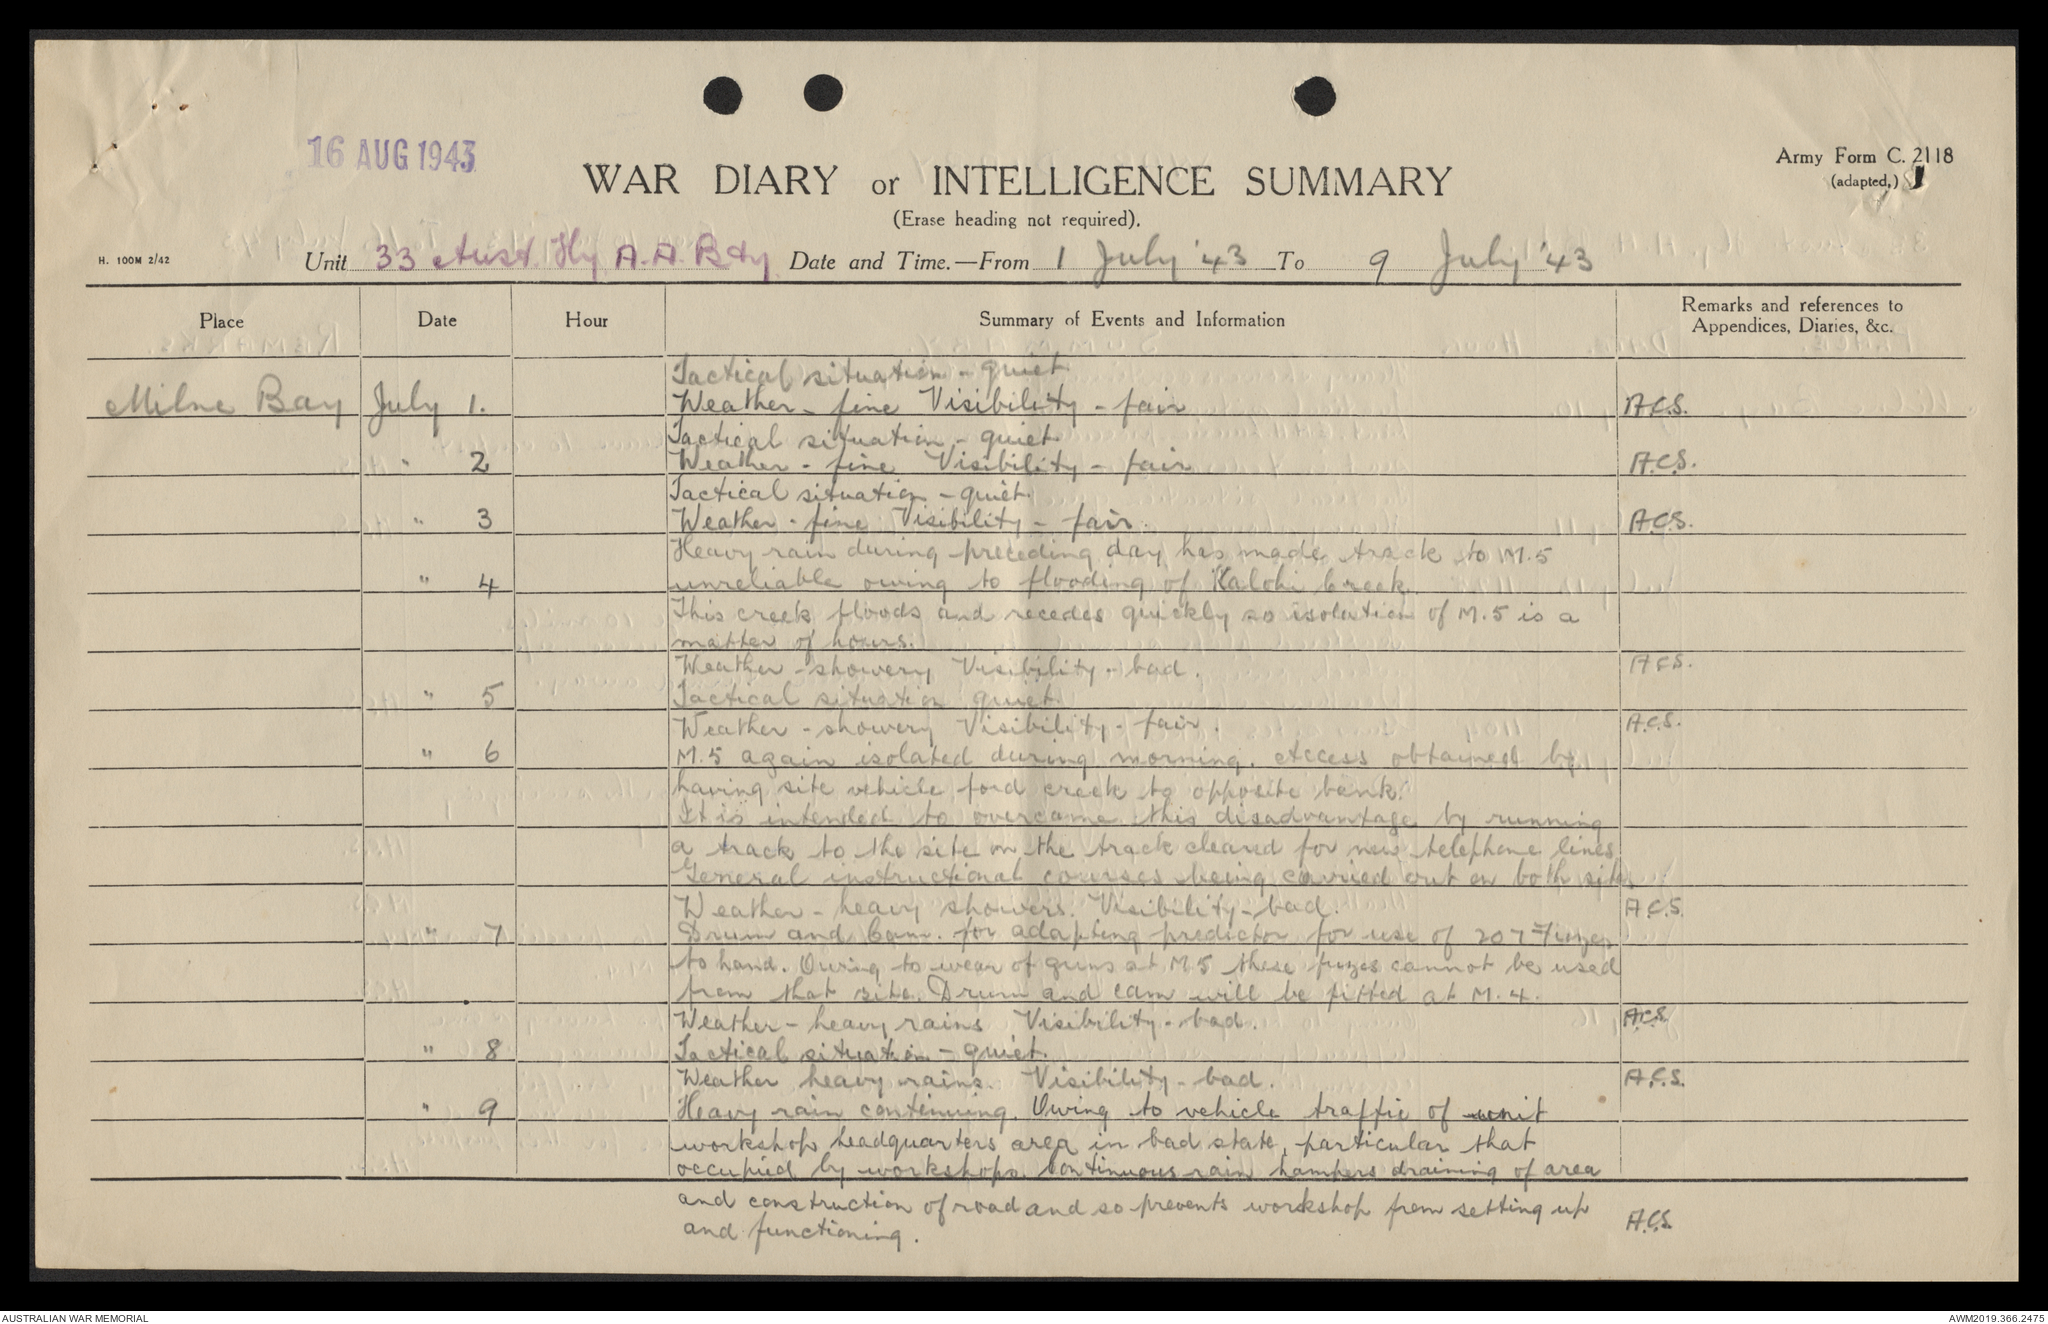 16 AUG 1943
Army Form C. 2118
(adapted,)
WAR DIARY or INTELLIGENCE SUMMARY
(Erase heading not required).
H. 100M 2/42
Unit 33 Aust Hy A.A Bty Date and Time.—From 1 July '43 To 9 July '43
Place Date Hour Summary of Events and Information Remarks and references to Appendices, Diaries, &c.
Tactical situation - quiet
Milne Bay July 1. Weather - fine Visibility - fair A.C.S.
Tactical situation - quiet
" 2 Weather - fine Visibility - fair A.C.S.
Tactical situation - quiet.
" 3 Weather - fine Visibility - fair. A.C.S.
Heavy rain during preceding day has made track to M.5
" 4 unreliable owing to flooding of Kalohi Creek.
This creek floods and recedes quickly so isolation of M.5 is a
matter of hours.
Weather - showery Visibility - bad. A.C.S.
" 5 Tactical situation quiet.
Weather - showery Visibility - fair. A.C.S.
" 6 M.5 again isolated during morning. Access obtained by
having site vehicle ford creek to opposite bank.
It is intended to overcome this disadvantage by running
a track to the site on the track cleared for new telephone lines
General instructional courses being carried out on both sites.
Weather - heavy showers. Visibility - bad. A.C.S.
" 7 Drum and Cam. for adapting predictor for use of 207 Fuzes
to hand. Owing to wear of guns at M.5 these fuzes cannot be used
from that site. Drum and cam will be fitted at M.4.
Weather - heavy rains Visibility - bad. A.C.S.
" 8 Tactical situation - quiet.
Weather heavy rains. Visibility - bad. A.C.S.
" 9 Heavy rain continuing. Owing to vehicle traffic of unit
workshop headquarters area in bad state, particular that
occupied by workshops. Continuous rain hampers draining of area
and construction of road and so prevents workshop from setting up
and functioning. A.C.S.
AUSTRALIAN WAR MEMORIAL
AWM2019.366.2475